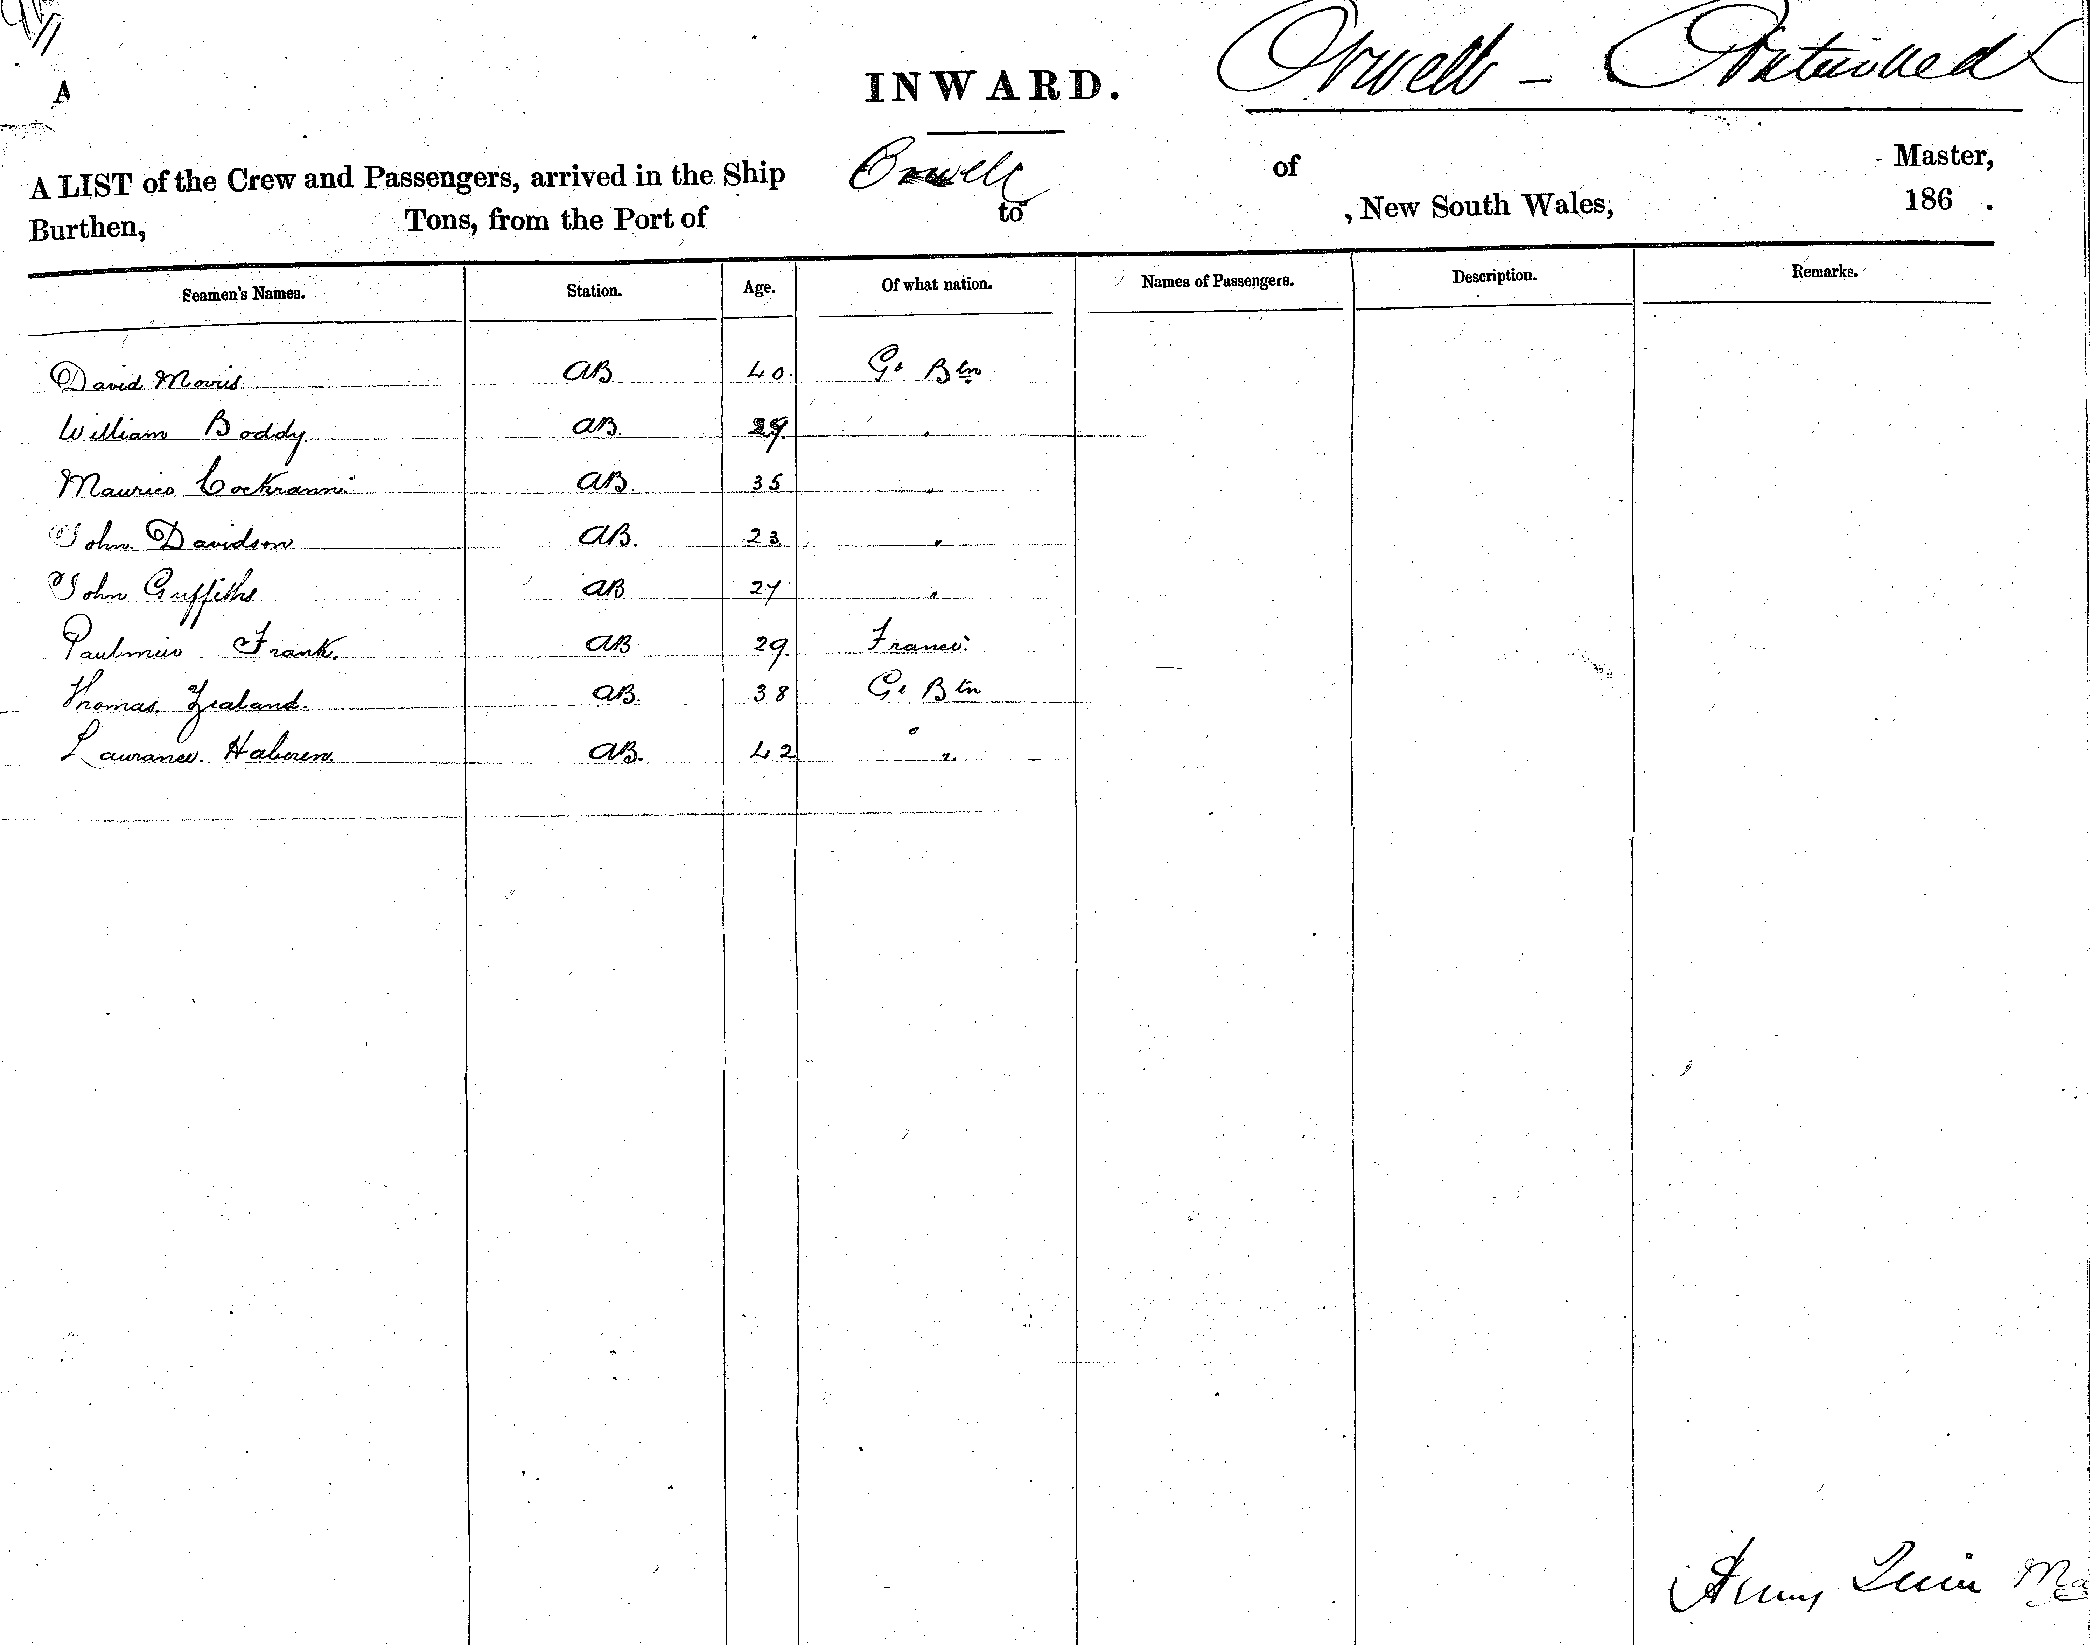 Orwell – Continued
A
INWARD.
A LIST of the Crew and Passengers, arrived in the Ship Orwell of Master,
Burthen, Tons, from the Port of to , New South Wales, 186 .
Seamen's Names. Station. Age. Of what nation. Names of Passengers. Description. Remarks.
David Morris AB 40 Gt Btn
William Boddy AB 29 "
Maurice Cockrann AB 35 "
John Davidson AB. 23 "
John Griffiths AB 27 "
Frank. AB 29. France
Thomas Zealand. AB. 38 Gt Btn
Laurance. AB. 42 "
Henry